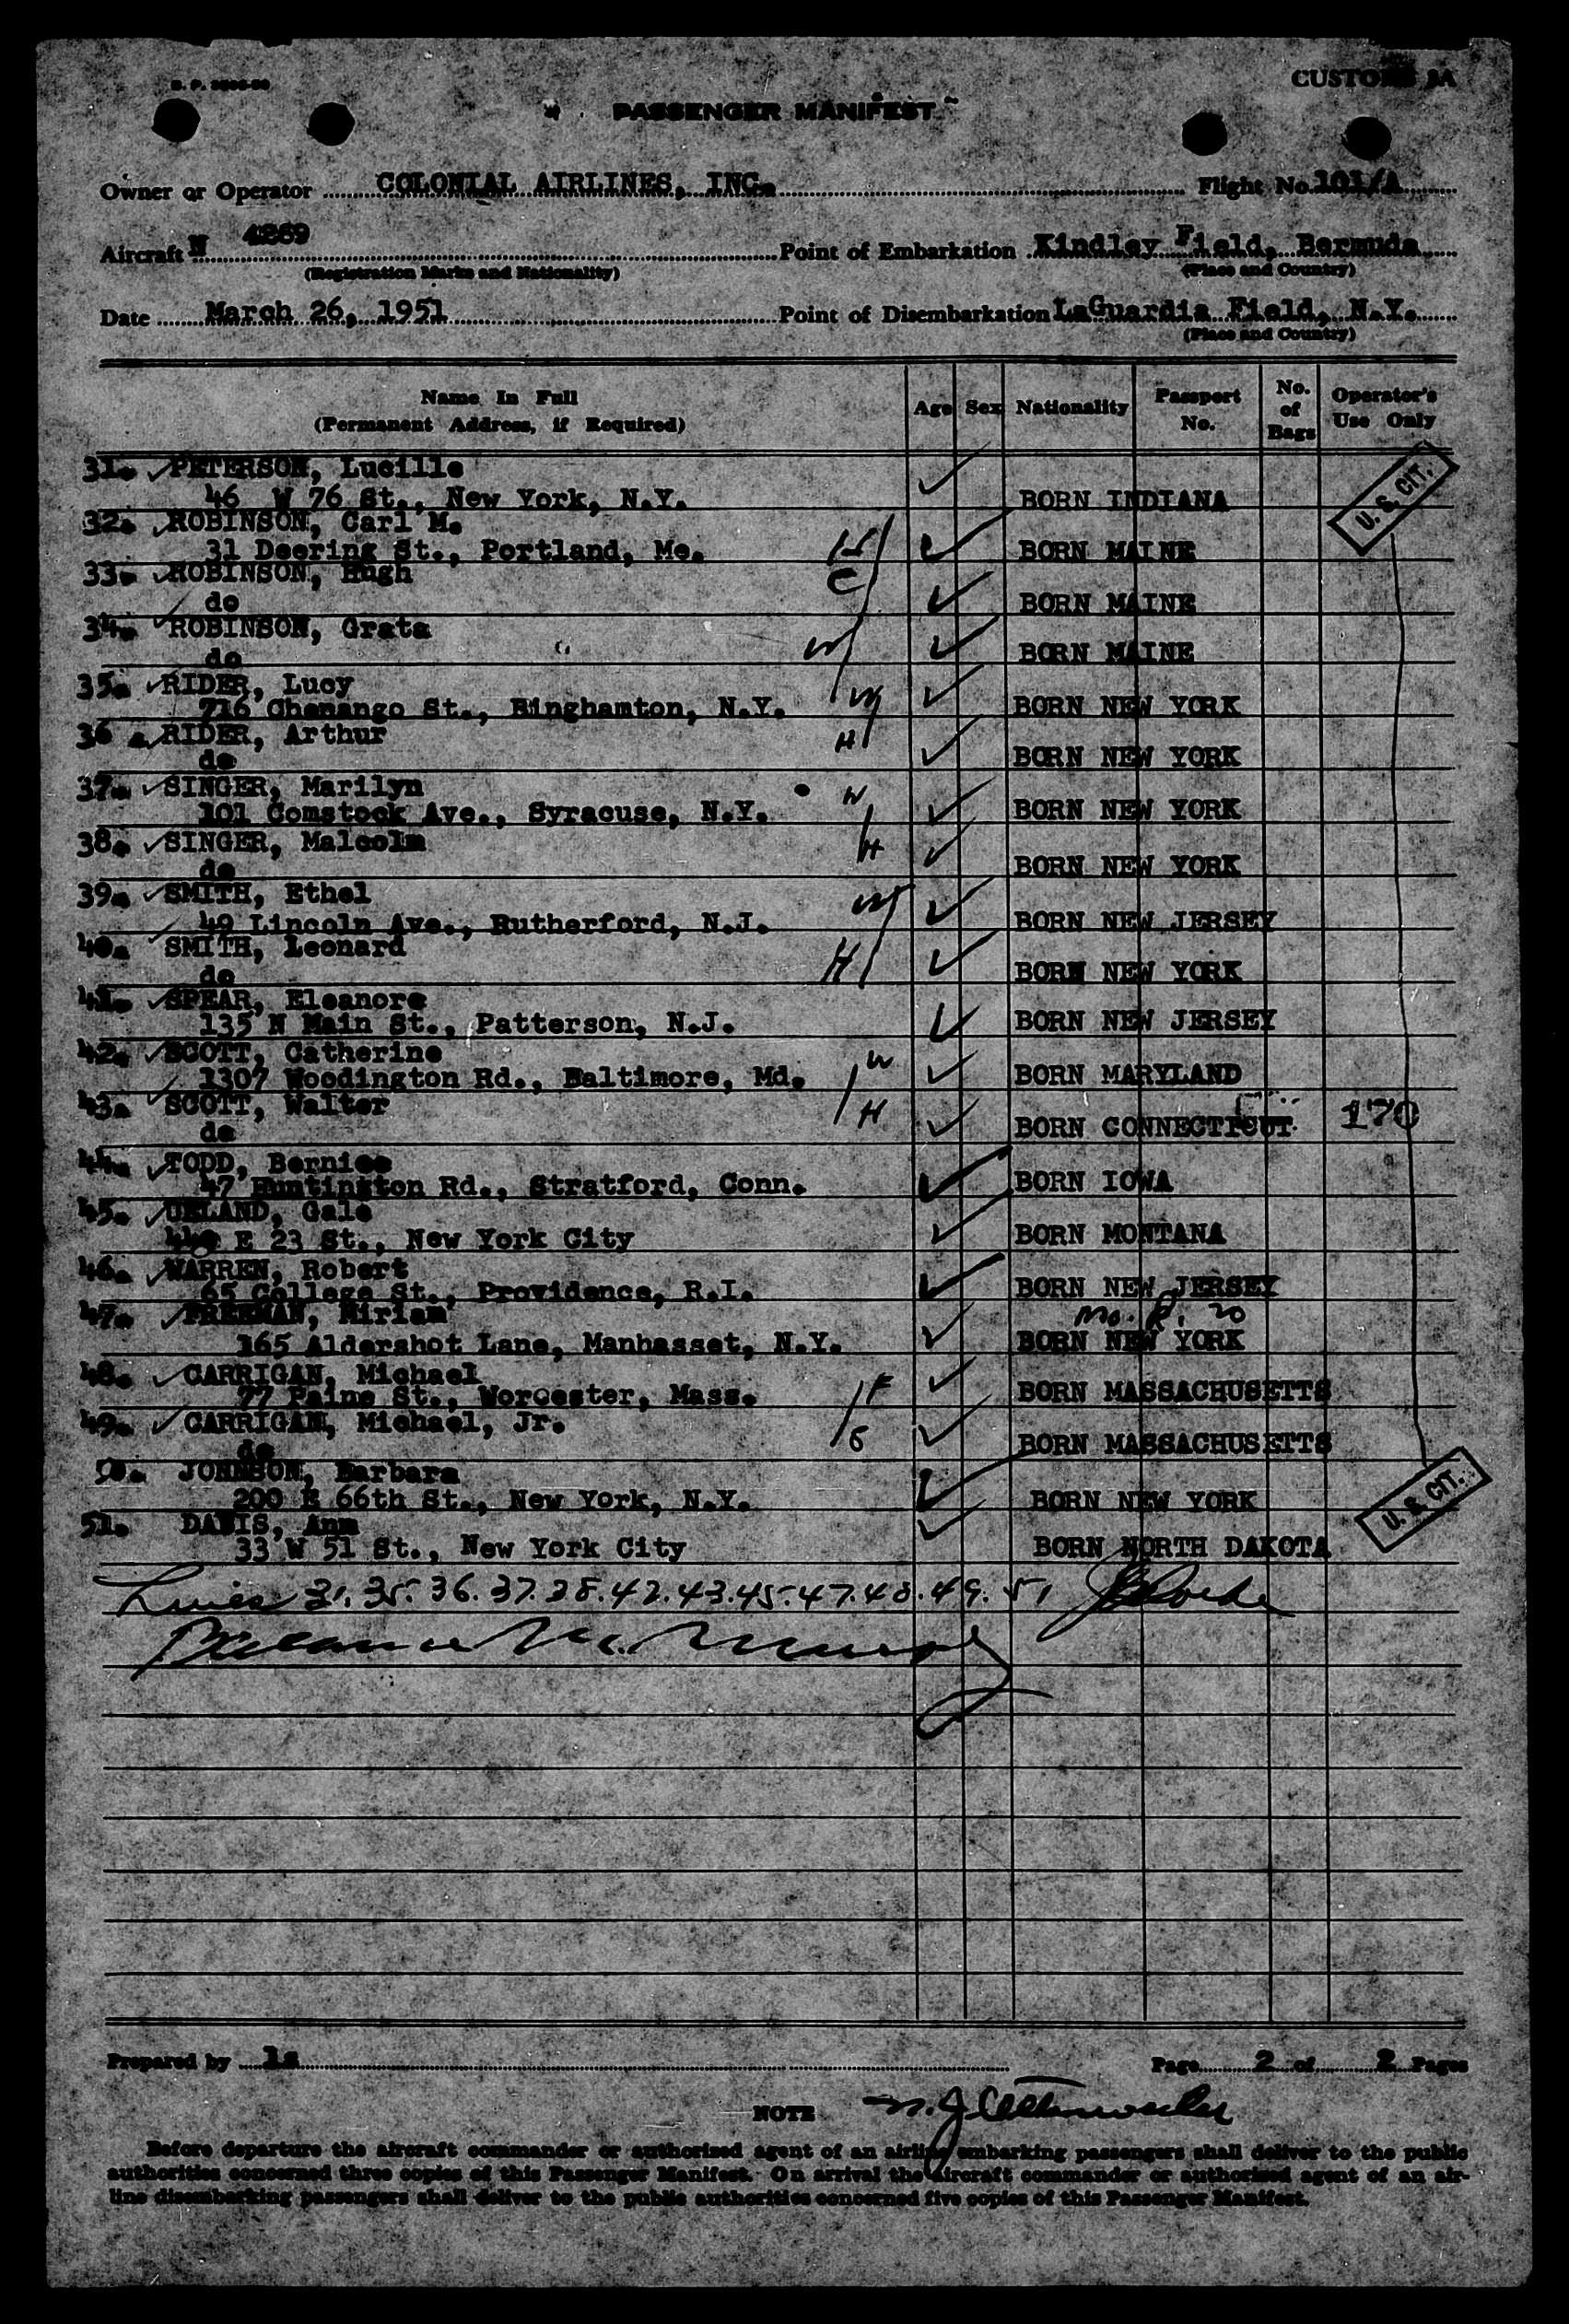 PASSENGER MANIFEST
Owner or Operator COLONIAL AIRLINES, INC. Flight No. 101/A
Aircraft N 4269 Point of Embarkation Kindley Field, Bermuda
(Registration Marks and Nationality) (Place and Country)
Date March 26, 1951 Point of Disembarkation LaGuardia Field, N.Y.
(Place and Country)
Name In Full
(Permanent Address, if Required)
Age Sex Nationality Passport No. No. of Bags Operator's Use Only
31. PETERSON, Lucille
46 W 76 St., New York, N.Y. BORN INDIANA U. S. CIT.
32. ROBINSON, Carl M.
31 Deering St., Portland, Me. H BORN MAINE
33. ROBINSON, Hugh C
do BORN MAINE
34. ROBINSON, Grata
do W BORN MAINE
35. RIDER, Lucy
716 Chenango St., Binghamton, N.Y. W BORN NEW YORK
36. RIDER, Arthur H
do BORN NEW YORK
37. SINGER, Marilyn W
101 Comstock Ave., Syracuse, N.Y. BORN NEW YORK
38. SINGER, Malcolm H
do BORN NEW YORK
39. SMITH, Ethel W
49 Lincoln Ave., Rutherford, N.J. BORN NEW JERSEY
40. SMITH, Leonard
do H BORN NEW YORK
41. SPEAR, Eleanore
135 N Main St., Patterson, N.J. BORN NEW JERSEY
42. SCOTT, Catherine W
1307 Woodington Rd., Baltimore, Md. BORN MARYLAND
43. SCOTT, Walter H
do BORN CONNECTICUT 170
44. TODD, Bernice
47 Huntington Rd., Stratford, Conn. BORN IOWA
45. UELAND, Gale
E 23 St., New York City BORN MONTANA
46. WARREN, Robert
65 College St., Providence, R.I. BORN NEW JERSEY
47. FREEMAN, Miriam
165 Aldershot Lane, Manhasset, N.Y. BORN NEW YORK
48. CARRIGAN, Michael
77 Paine St., Worcester, Mass. F BORN MASSACHUSETTS
49. CARRIGAN, Michael, Jr. S
do BORN MASSACHUSETTS
50. JOHNSON, Barbara
200 E 66th St., New York, N.Y. BORN NEW YORK U. S. CIT.
51. DAVIS, Ann
33 W 51 St., New York City BORN NORTH DAKOTA
31. 35. 36. 37. 38. 42. 43. 45. 47. 48. 49. 51
Prepared by ls Page 2 of 2 Pages
NOTE
Before departure the aircraft commander or authorized agent of an airline embarking passengers shall deliver to the public
authorities concerned three copies of this Passenger Manifest. On arrival the aircraft commander or authorized agent of an air-
line disembarking passengers shall deliver to the public authorities concerned five copies of this Passenger Manifest.